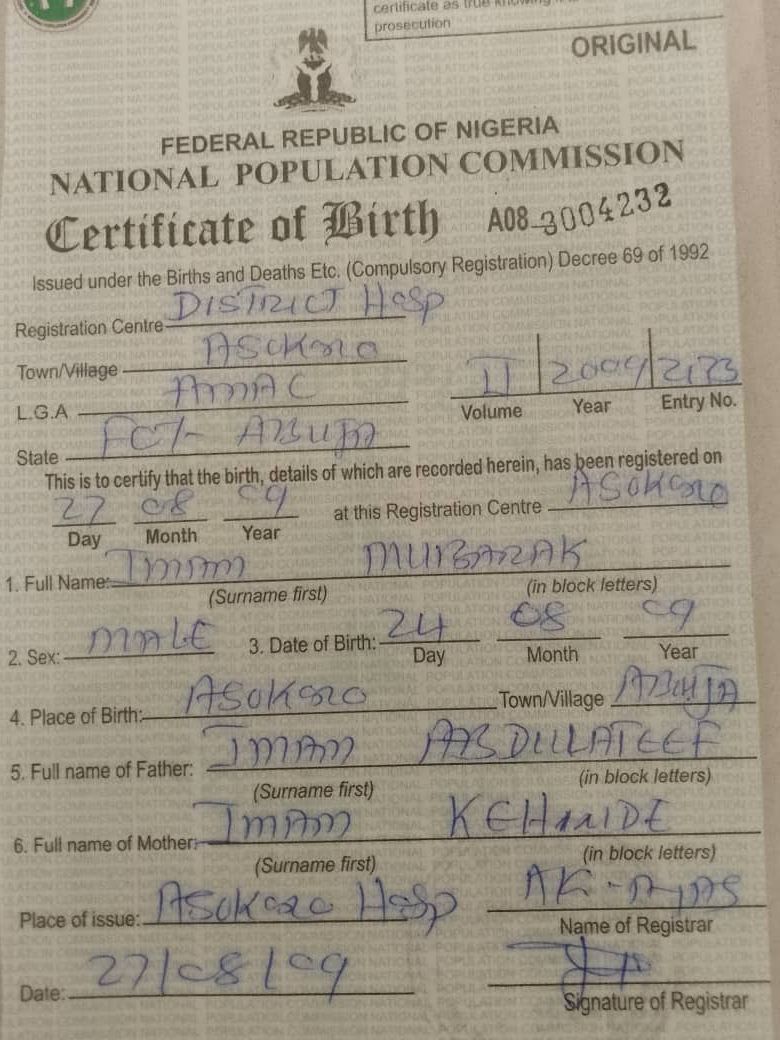 certificate as true knowing
prosecution
ORIGINAL
FEDERAL REPUBLIC OF NIGERIA
NATIONAL POPULATION COMMISSION
Certificate of Birth A08-3004232
Issued under the Births and Deaths Etc. (Compulsory Registration) Decree 69 of 1992
Registration Centre DISTRICT HOSP
Town/Village ASOKORO
L.G.A AMAC
II 2009 2173
Volume Year Entry No.
State FCT- ABUJA
This is to certify that the birth, details of which are recorded herein, has been registered on
27 08 09 at this Registration Centre ASOKORO
Day Month Year
1. Full Name: IMAM MUBARAK
(Surname first) (in block letters)
2. Sex: MALE 3. Date of Birth: 24 08 09
Day Month Year
4. Place of Birth: ASOKORO Town/Village ABUJA
5. Full name of Father: IMAM ABDULLATEEF
(Surname first) (in block letters)
6. Full name of Mother: IMAM KEHINDE
(Surname first) (in block letters)
Place of issue: ASOKORO HOSP
Name of Registrar
Date: 27/08/09
Signature of Registrar